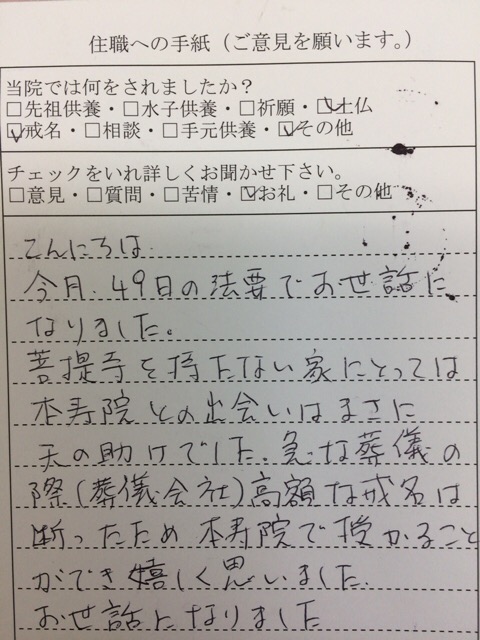 住職への手紙（ご意見を願います。）
当院では何をされましたか？
□先祖供養・□水子供養・□祈願・☑土仏
☑戒名・□相談・□手元供養・☑その他
チェックをいれ詳しくお聞かせ下さい。
□意見・□質問・□苦情・☑お礼・□その他
こんにちは
今月、49日の法要でお世話に
なりました。
菩提寺を持たない家にとっては
本寿院との出会いはまさに
天の助けでした。急な葬儀の
際(葬儀会社)高額な戒名は
断ったため本寿院で授かること
ができ嬉しく思いました。
お世話になりました